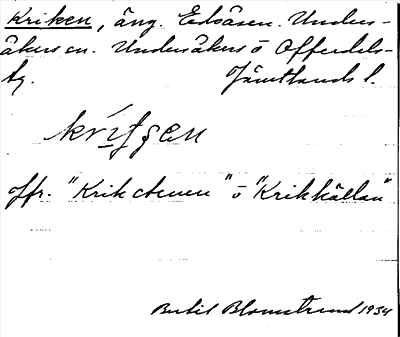 Kriken, äng. Edsåsen. Unders-
åkers sn. Undersåkers o Offerdals
tg. Jämtlands l.
krı́tʃen
jfr. "Krikstenen" o "Krikkällan"
Bertil Blomstrand 1934